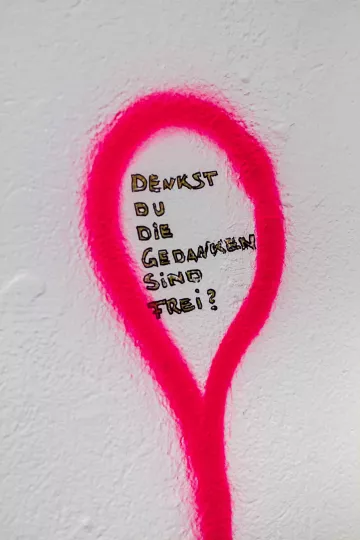 DENKST
DU
DiE
GEDANKEN
SiND
FREi?